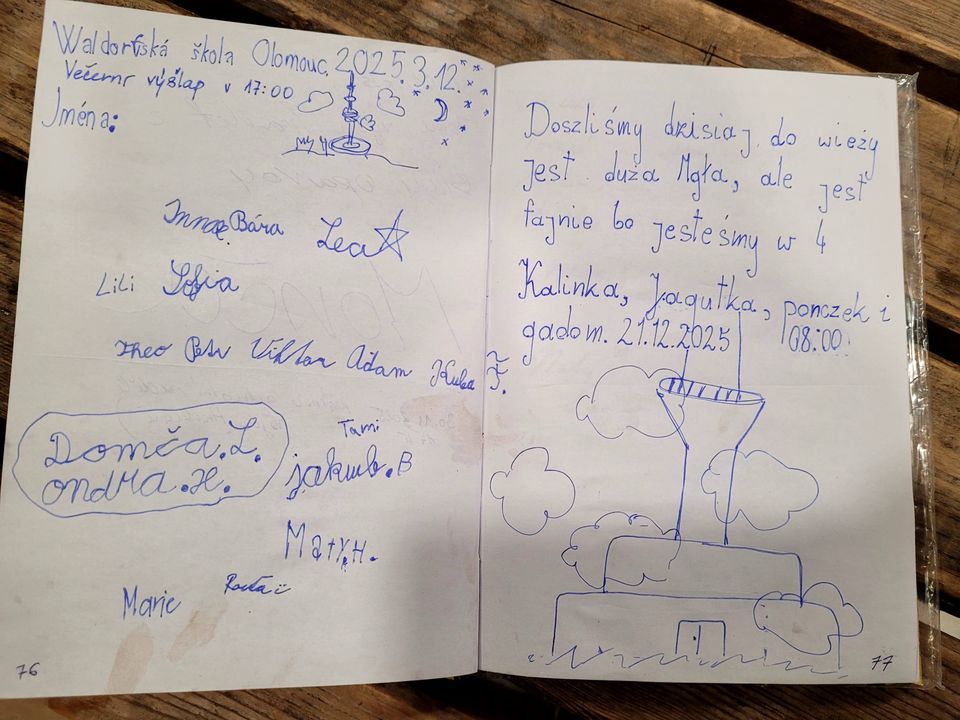 Waldorfská škola Olomouc. 2025. 3. 12.
Večerní výšlap v 17:00
Jména:
Bára Lea
Lili Sofia
Theo Petr Viktor Adam Kuba
Domča.L.
ondra.H.
Tami
jakub.B
Maty.H.
Marie
76
Doszliśmy dzisiaj do wieży
jest duża Mgła, ale jest
fajnie bo jesteśmy w 4
Kalinka, Jagutka, ponczek i
gadom. 21.12.2025 08:00
77